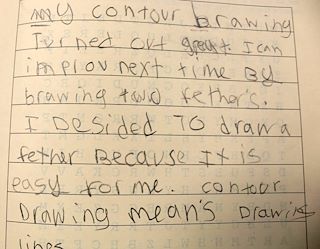 my contour brawing
Turned out great I can
improv next time By
brawing two fether's.
I Desided To draw a
fether Because It is
easy for me. contour
Drawing mean's Drawing
lines